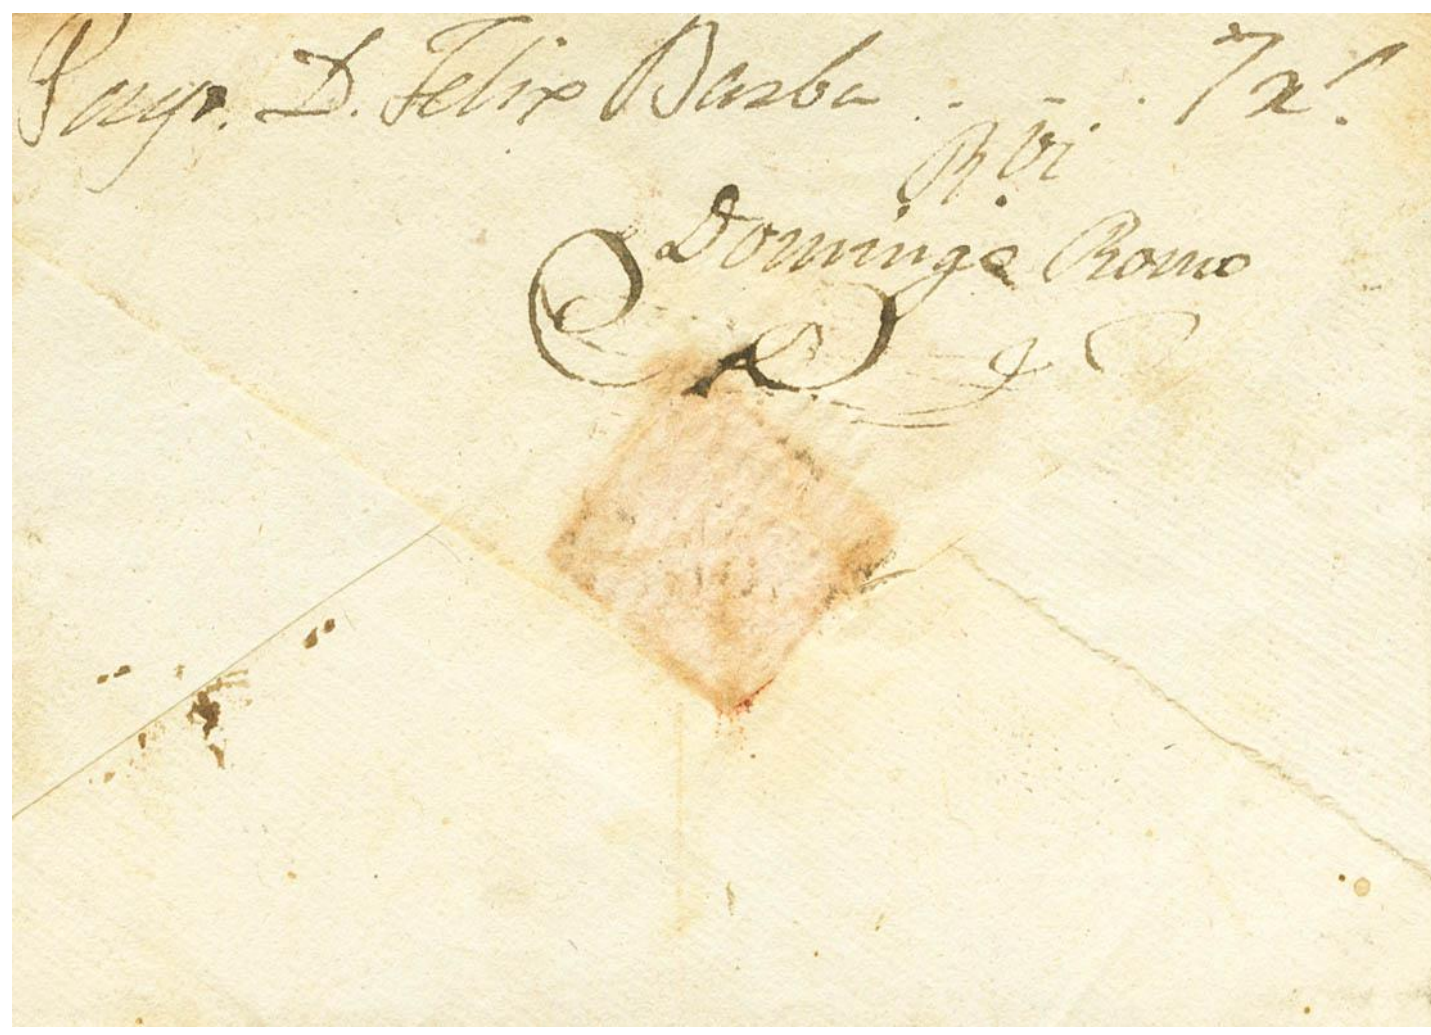 Pago. D. Felix Barba . - . 7 r.s
R.vi
Domingo Romo